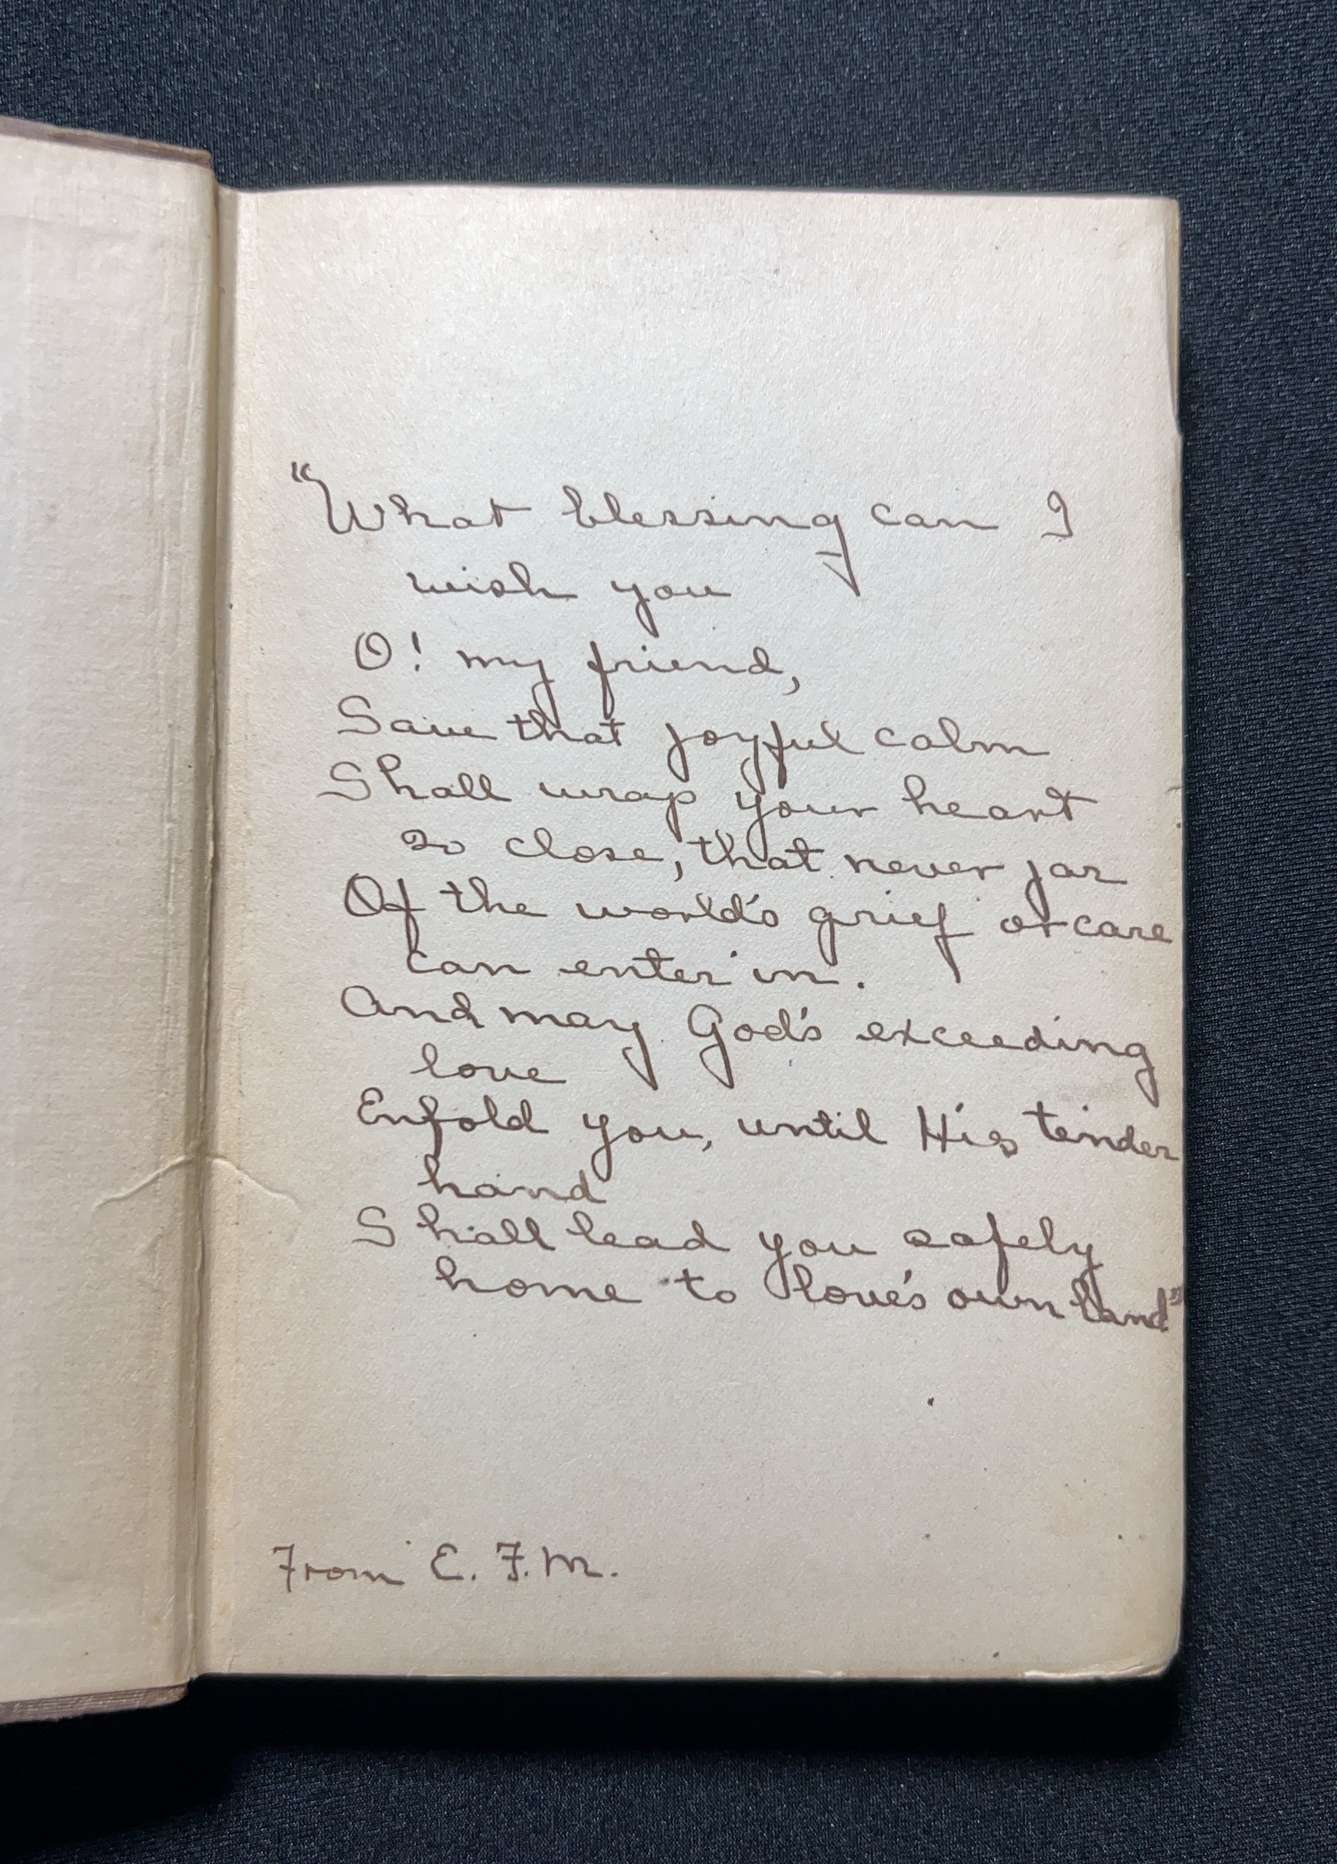 "What blessing can I
wish you
O! my friend,
Save that joyful calm
Shall wrap your heart
so close, that never jar
Of the world's grief or care
can enter in.
And may God's exceeding
love
Enfold you, until His tender
hand
Shall lead you safely
home to love's own land"
From E. F. M.